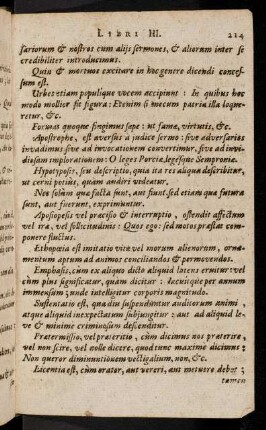 LIBRI III. 214
sariorum & nostros cum alijs sermones, & aliorum inter se
credibiliter introducimus.
Quin & mortuos excitare in hoc genere dicendi conces-
sum est.
Urbes etiam populique vocem accipiunt: In quibus hoc
modo mollior fit figura: Etenim si mecum patria illa loque-
retur, &c.
Formas quoque fingimus sæpe: ut famæ, virtutis, &c.
Apostrophe, est aversus à judice sermo: sive adversarios
invadimus: sive ad invocationem convertimur. sive ad invi-
diosam implorationem: O leges Porciæ, legesque Semproniæ.
Hypotyposis, seu descriptio, quia ita res aliqua describitur,
ut cerni potiùs, quàm audiri videatur.
Nec solùm quæ facta sunt, aut fiunt, sed etiam quæ futura
sunt, aut fuerunt, exprimuntur.
Aposiopesis vel præcisio & interruptio, ostendit affectum
vel iræ, vel sollicitudinis: Quos ego: sed motos præstat com-
ponere fluctus.
Ethopœia est imitatio vitæ vel morum alienorum, orna-
mentum aptum ad animos conciliandos & permovendos.
Emphasis, cùm ex aliquo dicto aliquid latens eruitur: vel
cùm plus significatur, quàm dicitur: Iacuitque per antrum
immensum; unde intelligitur corporis magnitudo.
Sustentatio est, qua diu suspenduntur auditorum animi,
atque aliquid inexpectatum subjungitur: aut ad aliquid le-
ve & minime criminosum descenditur.
Prætermissio, vel præteritio, cùm dicimus nos præterire,
vel non scire, vel nolle dicere, quod tunc maxime dicimus:
Non queror diminutionem vectigalium, non, &c.
Licentia est, cùm orator, aut vereri, aut metuere debet;
tamen